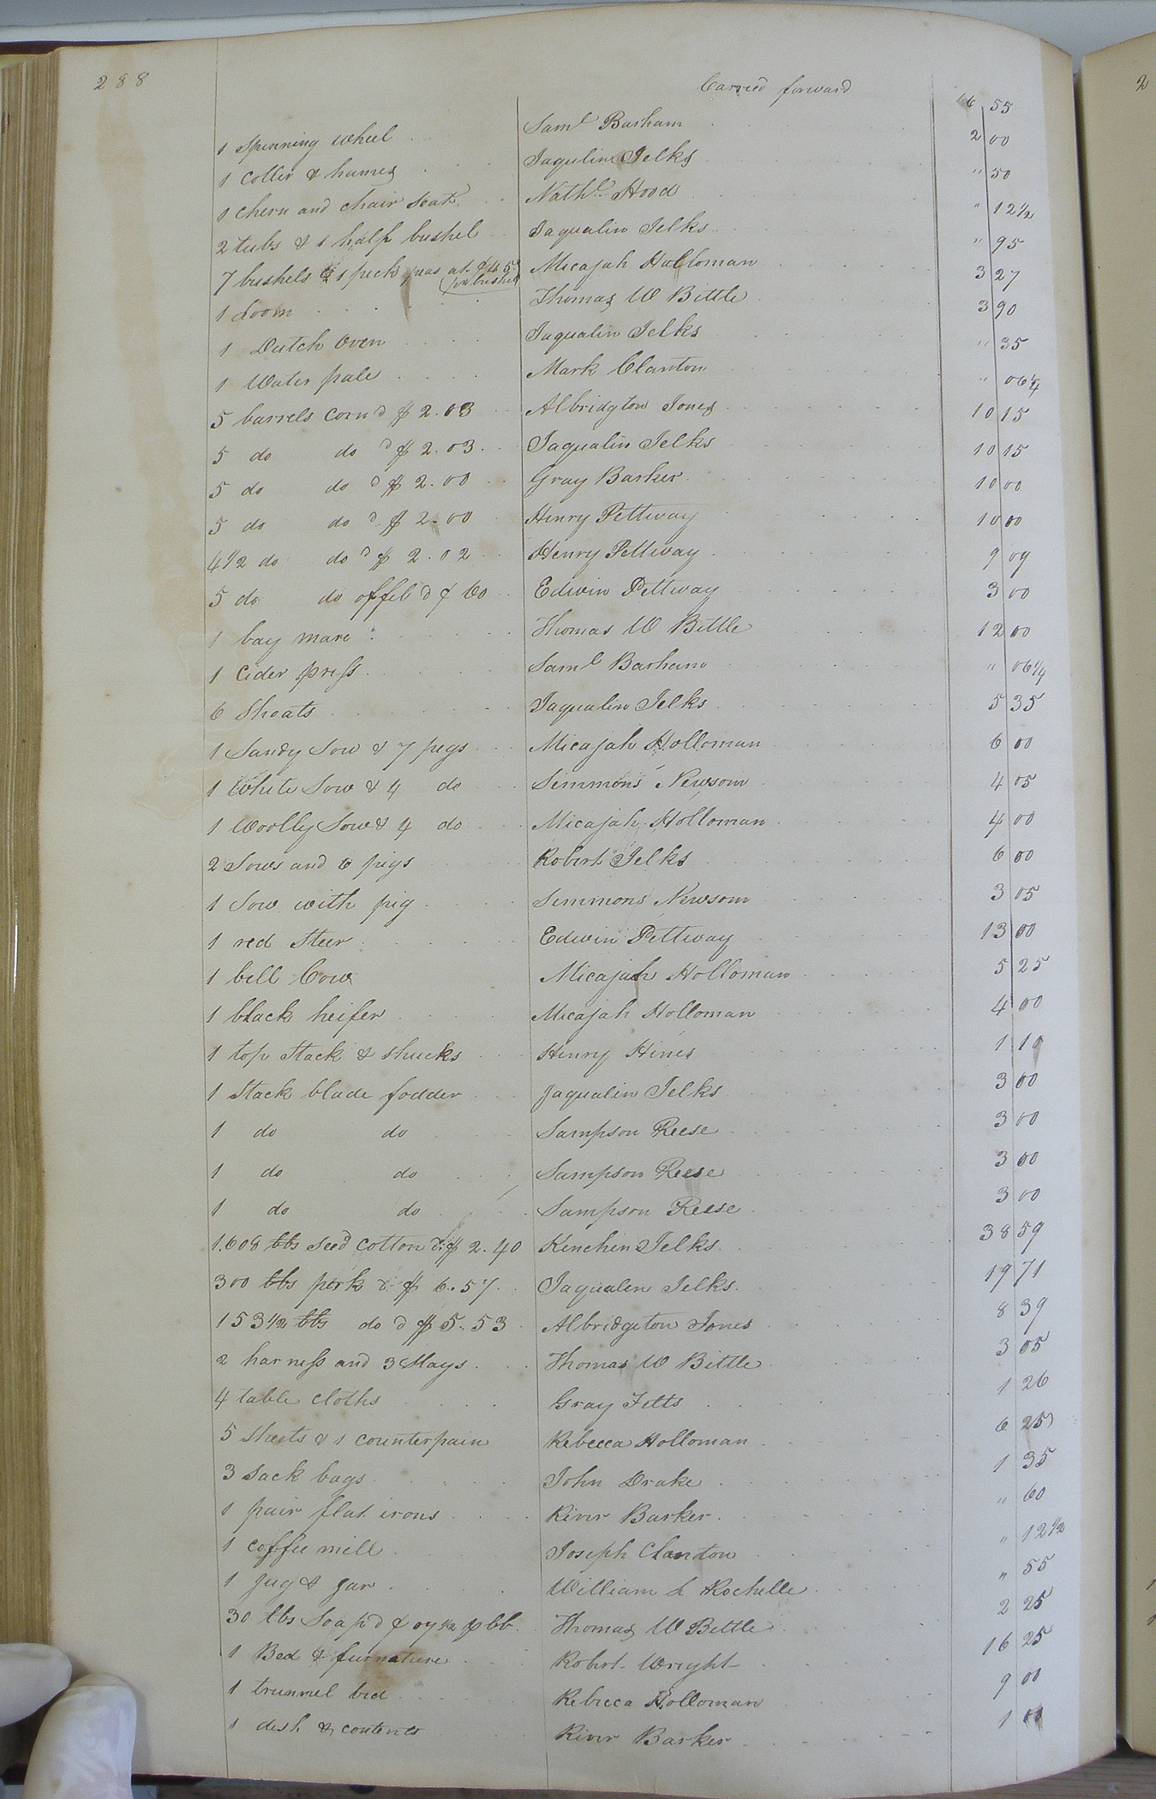 288
Carried forward 66 55
1 Spinning wheel Saml Barham 2 00
1 Coller & hames Jaqulin Jelks " 50
1 Chern and chair seat Nathl Hood " 12½
2 tubs & 1 half bushel Jaqualin Jelks " 95
7 bushels & 1 peck peas at ₵45 Micajah Holloman 3 27
per bushel
1 Loom Thomas W Bittle 3 90
1 Dutch Oven Jaqualin Jelks " 35
1 Water pale Mark Clanton " 06¼
5 barrels Corn @ $2.03 Albridgton Jones 10 15
5 do do @ $2.03 Jaqualin Jelks 10 15
5 do do @ $2.00 Gray Barker 10 00
5 do do @ $2.00 Henry Pettway 10 00
4½ do do @ $2.02 Henry Pettway 9 09
5 do do offel @ ₵60 Edwin Pettway 3 00
1 bay mare Thomas W Bittle 12 00
1 Cider press Saml Barham " 06¼
6 Shoats Jaqualin Jelks 5 35
1 Sandy Sow & 7 pigs Micajah Holloman 6 00
1 White Sow & 4 do Simmons Newsom 4 05
1 Woolly Sow & 4 do Micajah Holloman 4 00
2 Sows and 6 pigs Robert Jelks 6 00
1 Sow with pig Simmons Newsom 3 05
1 red Steer Edwin Pettway 13 00
1 bell Cow Micajah Holloman 5 25
1 black heifer Micajah Holloman 4 00
1 top Stack & shucks Henry Hines 1 10
1 Stack blade fodder Jaqualin Jelks 3 00
1 do do Sampson Reese 3 00
1 do do Sampson Reese 3 00
1 do do Sampson Reese 3 00
1.608 lbs seed cotton @ $2.40 Kinchen Jelks 38 59
300 lbs pork @ $6.57 Jaqualin Jelks 19 71
153½ lbs do @ $5.53 Albridgeton Jones 8 39
2 harness and 3 Slays Thomas W Bittle 3 05
4 table cloths Gray Fitts 1 26
5 Sheets & 1 counterpain Rebecca Holloman 6 25
3 Sack bags John Drake 1 35
1 pair flat irons River Barker " 60
1 coffee mill Joseph Clanton " 12½
1 Jug & Jar William L Rochelle " 55
30 lbs Soap @ ₵07½ ⅌ lb Thomas W Bittle 2 25
1 Bed & furnature Robert Wright 16 25
1 trunnel bed Rebecca Holloman 9 00
1 desk & contents River Barker 1 00